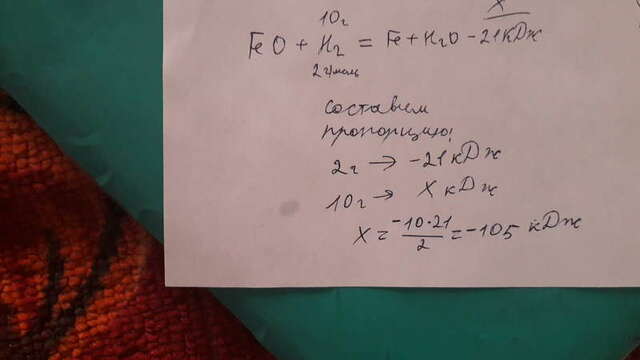 10г X
FeO + H2 = Fe + H2O - 21 кДж
2 г/моль
составим
пропорцию!
2г → -21 кДж
10г → X кДж
X = -10·21/2 = -105 кДж